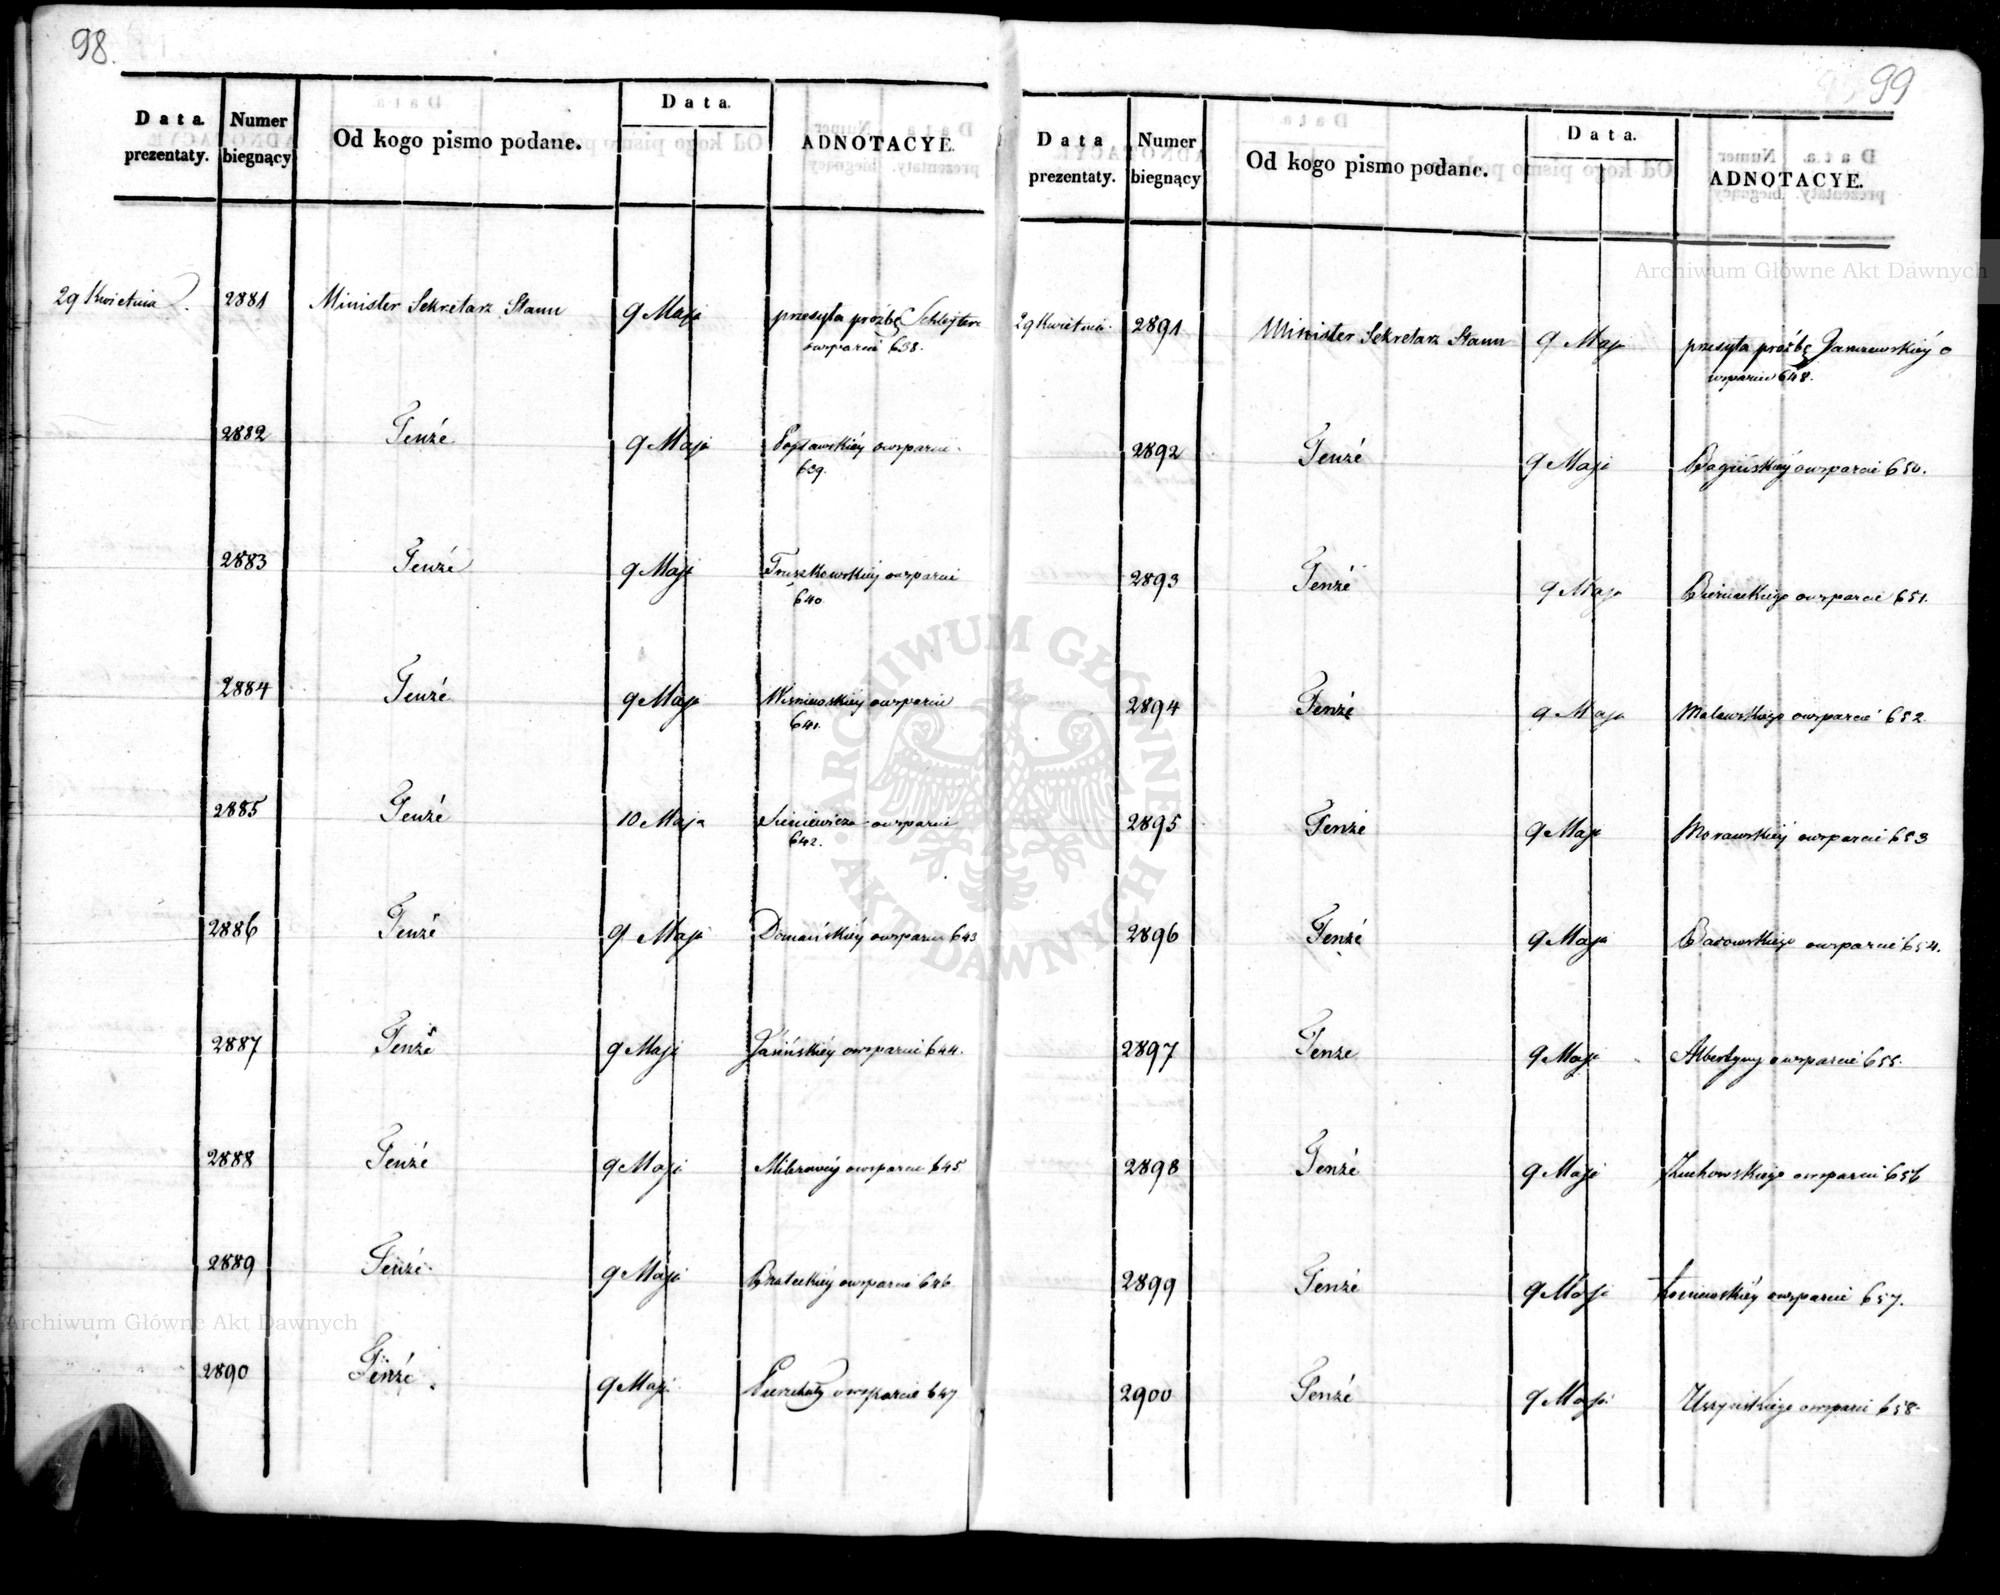 98.
Data prezentaty. Numer biegnący Od kogo pismo podane. Data. ADNOTACYE.
29 Kwietnia 2881 Minister Sekretarz Stanu 9 Maja przesyła próźbę Schlejter
o wsparcie 638.
2882 Tenże 9 Maja o wsparcie
639.
2883 Tenże 9 Maja Truszkowskiéy o wsparcie
640
2884 Tenże 9 Maja Wiśniewskiéy o wsparcie
641.
2885 Tenże 10 Maja o wsparcie
642.
2886 Tenże 9 Maja Domańskiéy o wsparcie 643
2887 Tenże 9 Maja Jasińskiéy o wsparcie 644.
2888 Tenże 9 Maja o wsparcie 645
2889 Tenże 9 Maja o wsparcie 646
2890 Tenże 9 Maja o wsparcie 647
99
Data prezentaty. Numer biegnący Od kogo pismo podane. Data. ADNOTACYE.
29 Kwietnia 2891 Minister Sekretarz Stanu 9 Maja przesyła próźbę Janiszewskiéy o
wsparcie 648.
2892 Tenże 9 Maja Bagińskiéy o wsparcie 650.
2893 Tenże 9 Maja Bierneckiego o wsparcie 651.
2894 Tenże 9 Maja Malewskiego o wsparcie 652
2895 Tenże 9 Maja Morawskiéy o wsparcie 653
2896 Tenże 9 Maja o wsparcie 654.
2897 Tenże 9 Maja Albertyny o wsparcie 655.
2898 Tenże 9 Maja Żuchowskiego o wsparcie 656
2899 Tenże 9 Maja o wsparcie 657.
2900 Tenże 9 Maja o wsparcie 658
Archiwum Główne Akt Dawnych
ARCHIWUM GŁÓWNE AKT DAWNYCH
Archiwum Główne Akt Dawnych